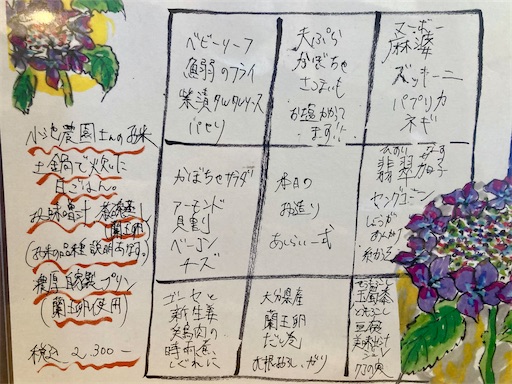 小池農園さんのお米
土鍋で炊いた
白ごはん。
お味噌汁
蘭王卵
(お米の品種説明あり〼。)
濃厚自家製プリン
(蘭王卵使用)
税込 2,300-
ベビーリーフ
のフライ
柴漬タルタルソース
パセリ
天ぷら
かぼちゃ
さつまいも
お塩かかって
ます!!
マーボー
麻婆
ズッキーニ
パプリカ
ネギ
かぼちゃサラダ
アーモンド
貝割
ベーコン
チーズ
本日の
お造り
あしらい一式
ひすい なす
翡翠茄子
しょうが
あんかけ
糸かつお
ゴーヤと
新生姜
鶏肉の
時雨煮
しぐれに
大分県産
蘭王卵
だし巻
大根おろし、ガリ
とうもろこし
玉蜀黍
とうもろこし
豆腐
美味出汁
クコの実